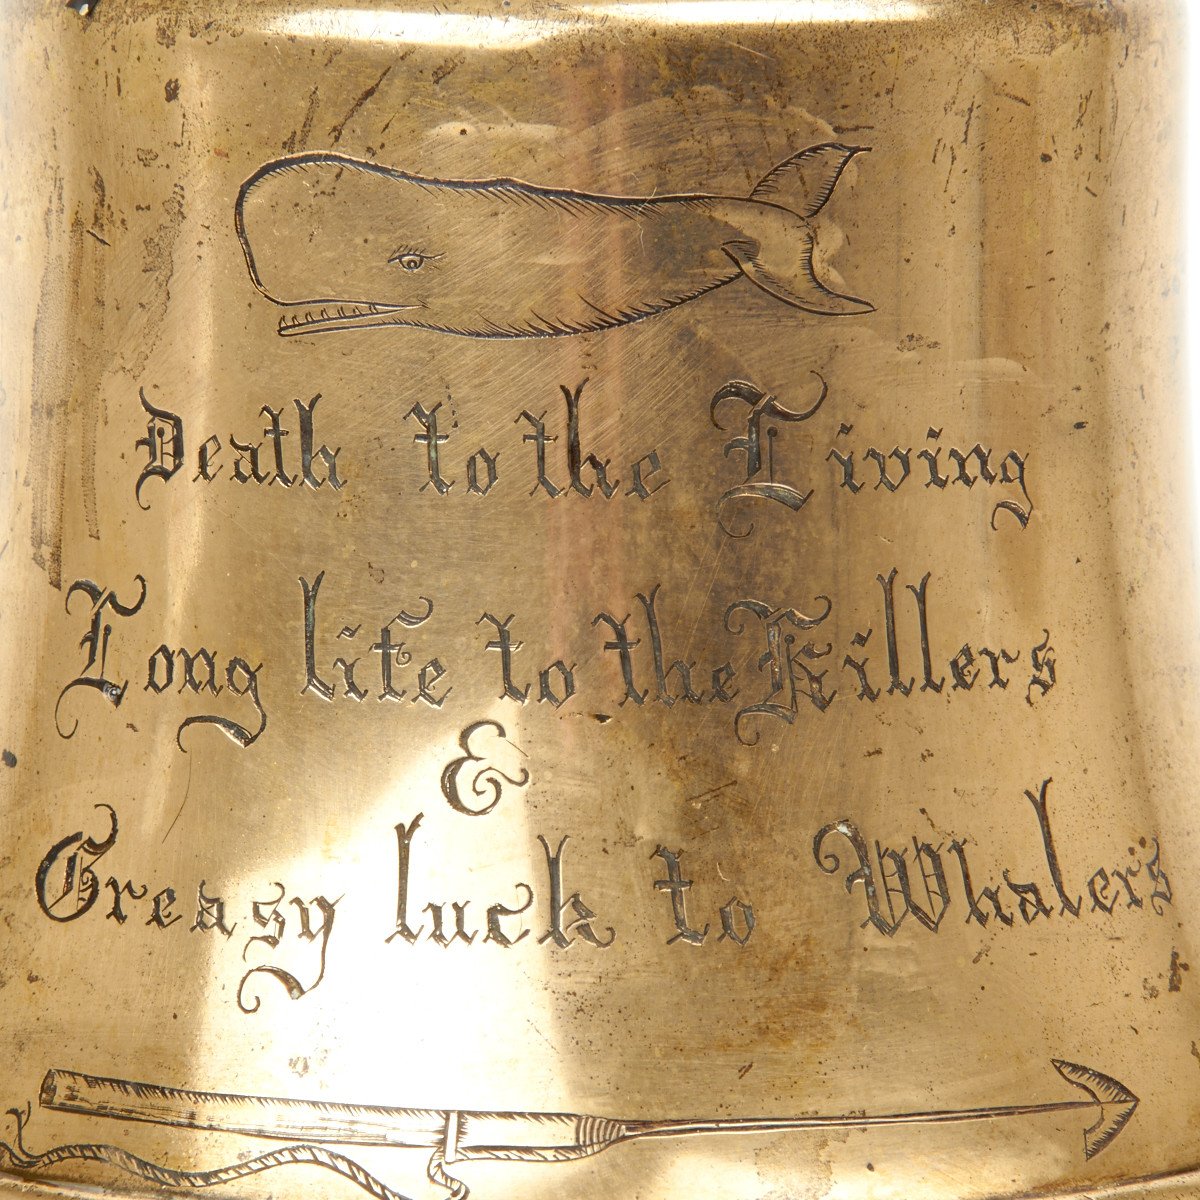 Death to the Living
Long life to the Killers
&
Greasy luck to Whalers